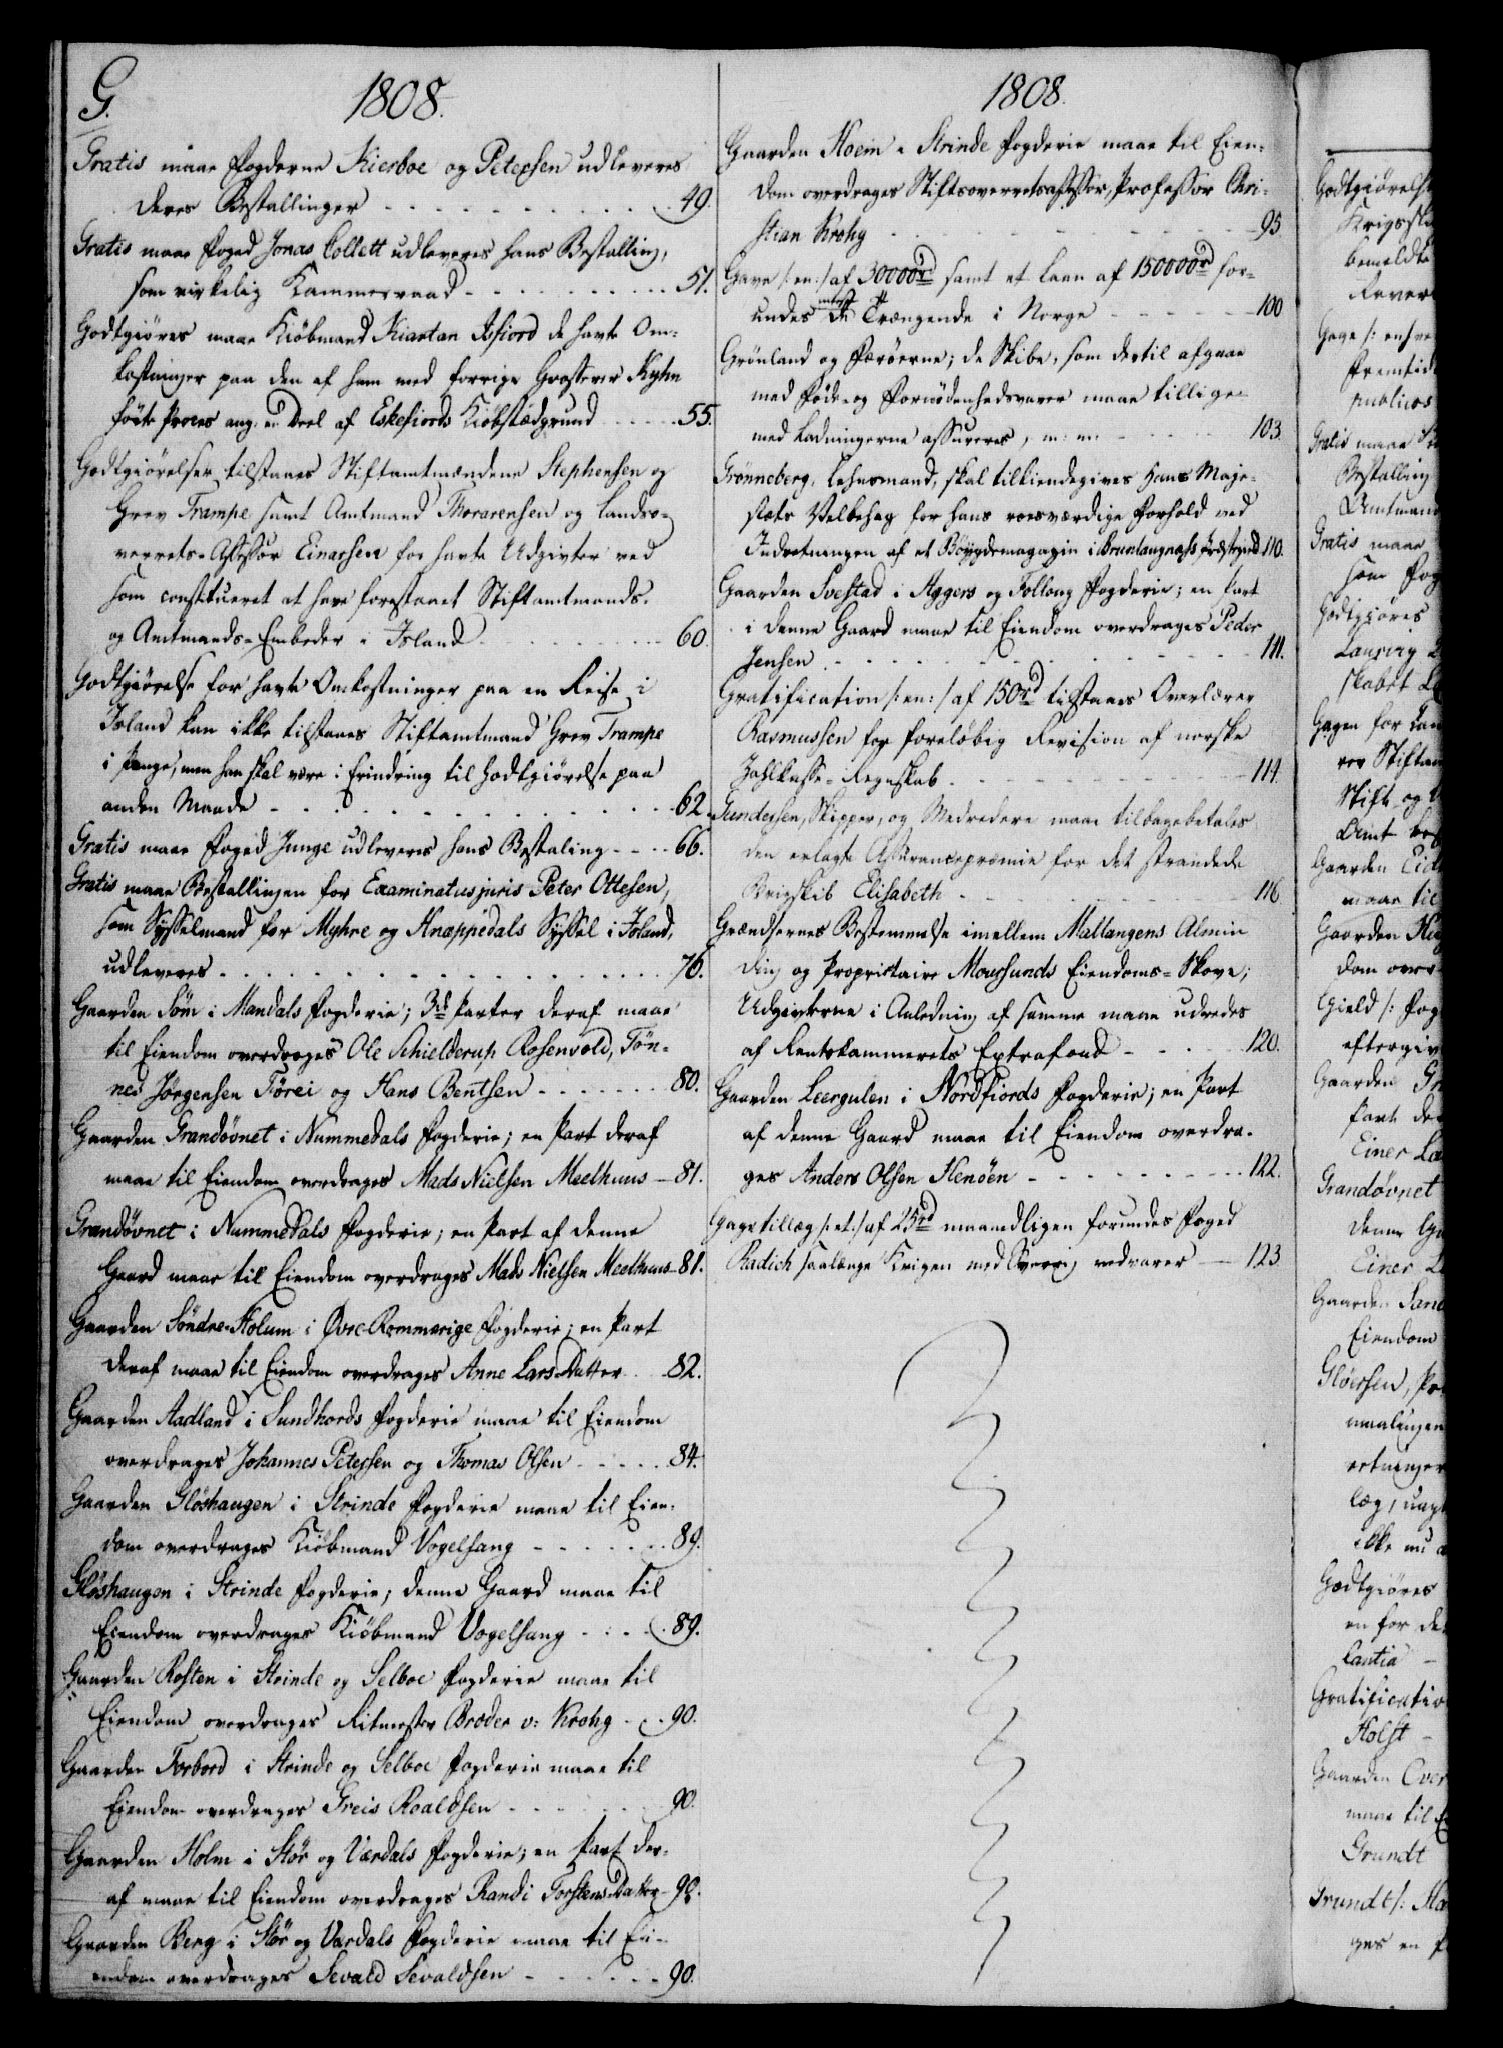 G.
1808.
Gratis maae Fogderne Kierboe og Petersen udleveres
deres Bestallinger - - - 49.
Gratis maae Foged Jonas Collett udleveres hans Bestalling,
som virkelig Kammerraad - - - 51.
Godtgiöres maae Kiöbmand Kiartan Isfiord de havte Om-
kostninger paa den af ham med forrige Grosserer Kyhn
förte Proces ang. en Deel af Eskefiords Kiöbstædgrund - - - 55.
Godtgiörelser tilstaaes Stiftamtmændene Stephensen og
Grev Trampe samt Amtmand Thorarensen og Landso-
verrets-Assessor Einarsen for havte Udgivter ved
som constitueret at have forestaaet Stiftamtmands-
og Amtmands-Embeder i Island - - - 60.
Godtgiörelse for havte Omkostninger paa en Reise i
Island kan ikke tilstaaes Stiftamtmand Grev Trampe
i Penge, men han skal være i Erindring til Godtgiörelse paa
anden Maade - - - 62.
Gratis maae Foged Junge udleveres hans Bestaling - - - 66.
Gratis maae Bestallingen for Examinatus juris Peter Ottesen,
som Sysselmand for Myhre og Knappedals Syssel i Island,
udleveres - - - 76.
Gaarden Söm i Mandals Fogderie; 3de Parter deraf maae
til Eiendom overdrages Ole Schielderup Rosenvold, Tön-
nes Jörgensen Törei og Hans Bentsen - - - 80.
Gaarden Grandövnet i Nummedals Fogderie; en Part deraf
maae til Eiendom overdrages Mads Nielsen Meelhuus - 81.
Grandövnet i Nummedals Fogderie; en Part af denne
Gaard maae til Eiendom overdrages Mads Nielsen Meelhuus - 81.
Gaarden Söndre-Holum i Övre-Rommerige Fogderie; en Part
deraf maae til Eiendom overdrages Anne Lars Datter - - 82.
Gaarden Aadland i Sundhords Fogderie maae til Eiendom
overdrages Johannes Petersen og Thomas Olsen - - - 84.
Gaarden Glöshaugen i Strinde Fogderie maae til Eien-
dom overdrages Kiöbmand Vogelsang - - - 89.
Glöshaugen i Strinde Fogderie; denne Gaard maae til
Eiendom overdrages Kiöbmand Vogelsang - - - 89.
Gaarden Rosten i Strinde og Selboe Fogderie maae til
Eiendom overdrages Ritmester Broder v: Krohg - - 90.
Gaarden Forbord i Strinde og Selboe Fogderie maae til
Eiendom overdrages Greis Roaldsen - - - 90.
Gaarden Holm i Stör og Værdals Fogderie; en Part der-
af maae til Eiendom overdrages Randi Torstens Datter - 90.
Gaarden Berg i Stör og Værdals Fogderie maae til Ei-
endom overdrages Sevald Sevaldsen - - - 90.
1808.
Gaarden Hoem i Strinde Fogderie maae til Eien-
dom overdrages Stiftsoverretsassessor, Professor Chri-
stian Krohg - - - 95
Gave /: en :/ af 30000rd samt et Laan af 150000rd for-
undes de meest Trængende i Norge - - - 100
Grönland og Færöerne; de Skibe, som dertil afgaae
med Föde- og Fornödenhedsvarer maae tillige
med Ladningerne assureres, m: m: - - - 103.
Grönneberg, Lehnsmand, skal tilkiendegives Hans Maje-
stæts Velbehag for hans roesværdige Forhold ved
Indretningen af et Böygdemagazin i Brunlaugnæss Præstegield 110.
Gaarden Svestad i Aggers og Follong Fogderie; en Part
i denne Gaard maae til Eiendom overdrages Peder
Jensen - - - 111.
Gratification /: en :/ af 150rd tilstaaes Overlærer
Rasmussen for foreløbig Revision af norske
Zahlkasse-Regnskab - - - 114.
Gundersen, Skipper, og Medredere maae tilbagebetales
den erlagte Assurancepræmie for det strandede
Brigskib Elisabeth - - - 116
Grændsernes Bestemmelse imellem Mallangens Almin
ding og Proprietaire Moursunds Eiendoms-Skove;
Udgivterne i Anledning af samme maae udredes
af Rentekammerets Extrafond - - - 120.
Gaarden Leergulen i Nordfiords Fogderie; en Part
af denne Gaard maae til Eiendom overdra-
ges Anders Olsen Henöen - - - 122.
Gagetillæg /: et :/ af 25rd maanedligen forundes Foged
Radich saalænge Krigen med Sverrig vedvarer - 123
Godtgiörels
Krigssk
bemeldte
Rever
Gage /: enhve
fremtid
publicos
Gratis maae
Bestalling
Amtmand
Gratis maae
som Fog
Godtgiöres
Laurvig
skabet
Gagen for
rer Stiftam
Stift og
Amt
Gaarden Eid
maae til
Gaarden
dom over
Gield /: Fog
eftergiv
Gaarden Gr
Part de
Einer La
Grandövnet
denne Ga
Einer L
Gaarden San
Eiendom
Glöersen, Pr
maalingen
retninger
læg, uagt
ikke nu
Godtgiöres
en for de
Cautia -
Gratificatio
Holst -
Gaarden Over
maae til E
Grundt
Grundt /: Ha
ges en P